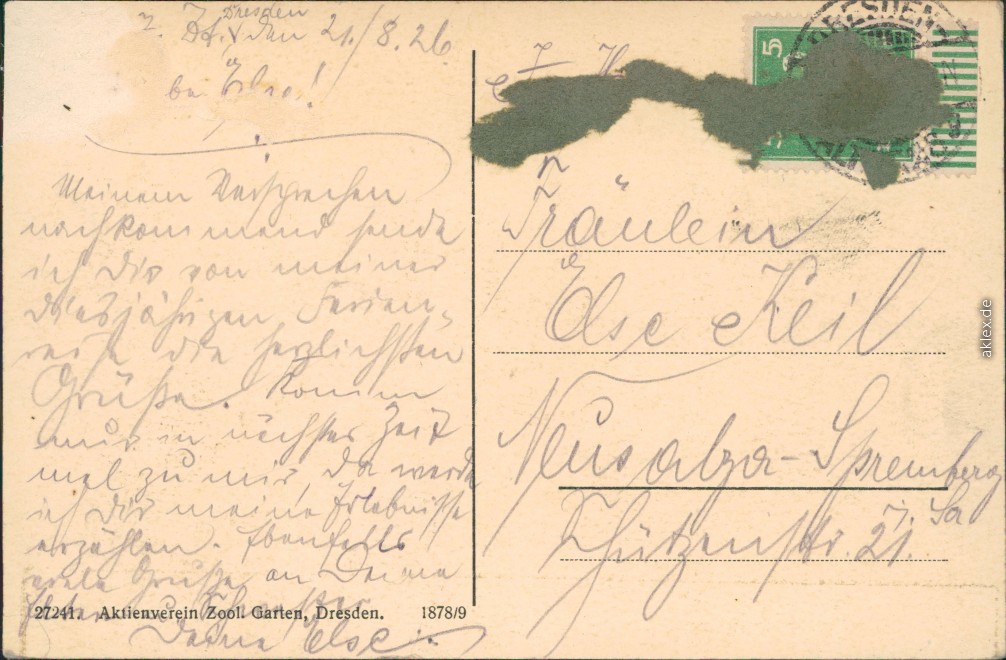 z. Z. Dresden
Dresden 21./8.26
Liebe Else!
Meinem Versprechen
nachkommend sende
ich Dir von meiner
diesjährigen Ferien-
reise die herzlichsten
Grüße. Komm
nur in nächster Zeit
mal zu mir, da werde
ich Dir meine Erlebnisse
erzählen. Ebenfalls
viele Grüße an Deine
Eltern u. Schwester
Deine Else.
27241. Aktienverein Zool. Garten, Dresden. 1878/9
5
DRESDEN
Fräulein
Else Keil
Neusalza-Spremberg
i/Sa
Schützenstr. 21.
aklex.de